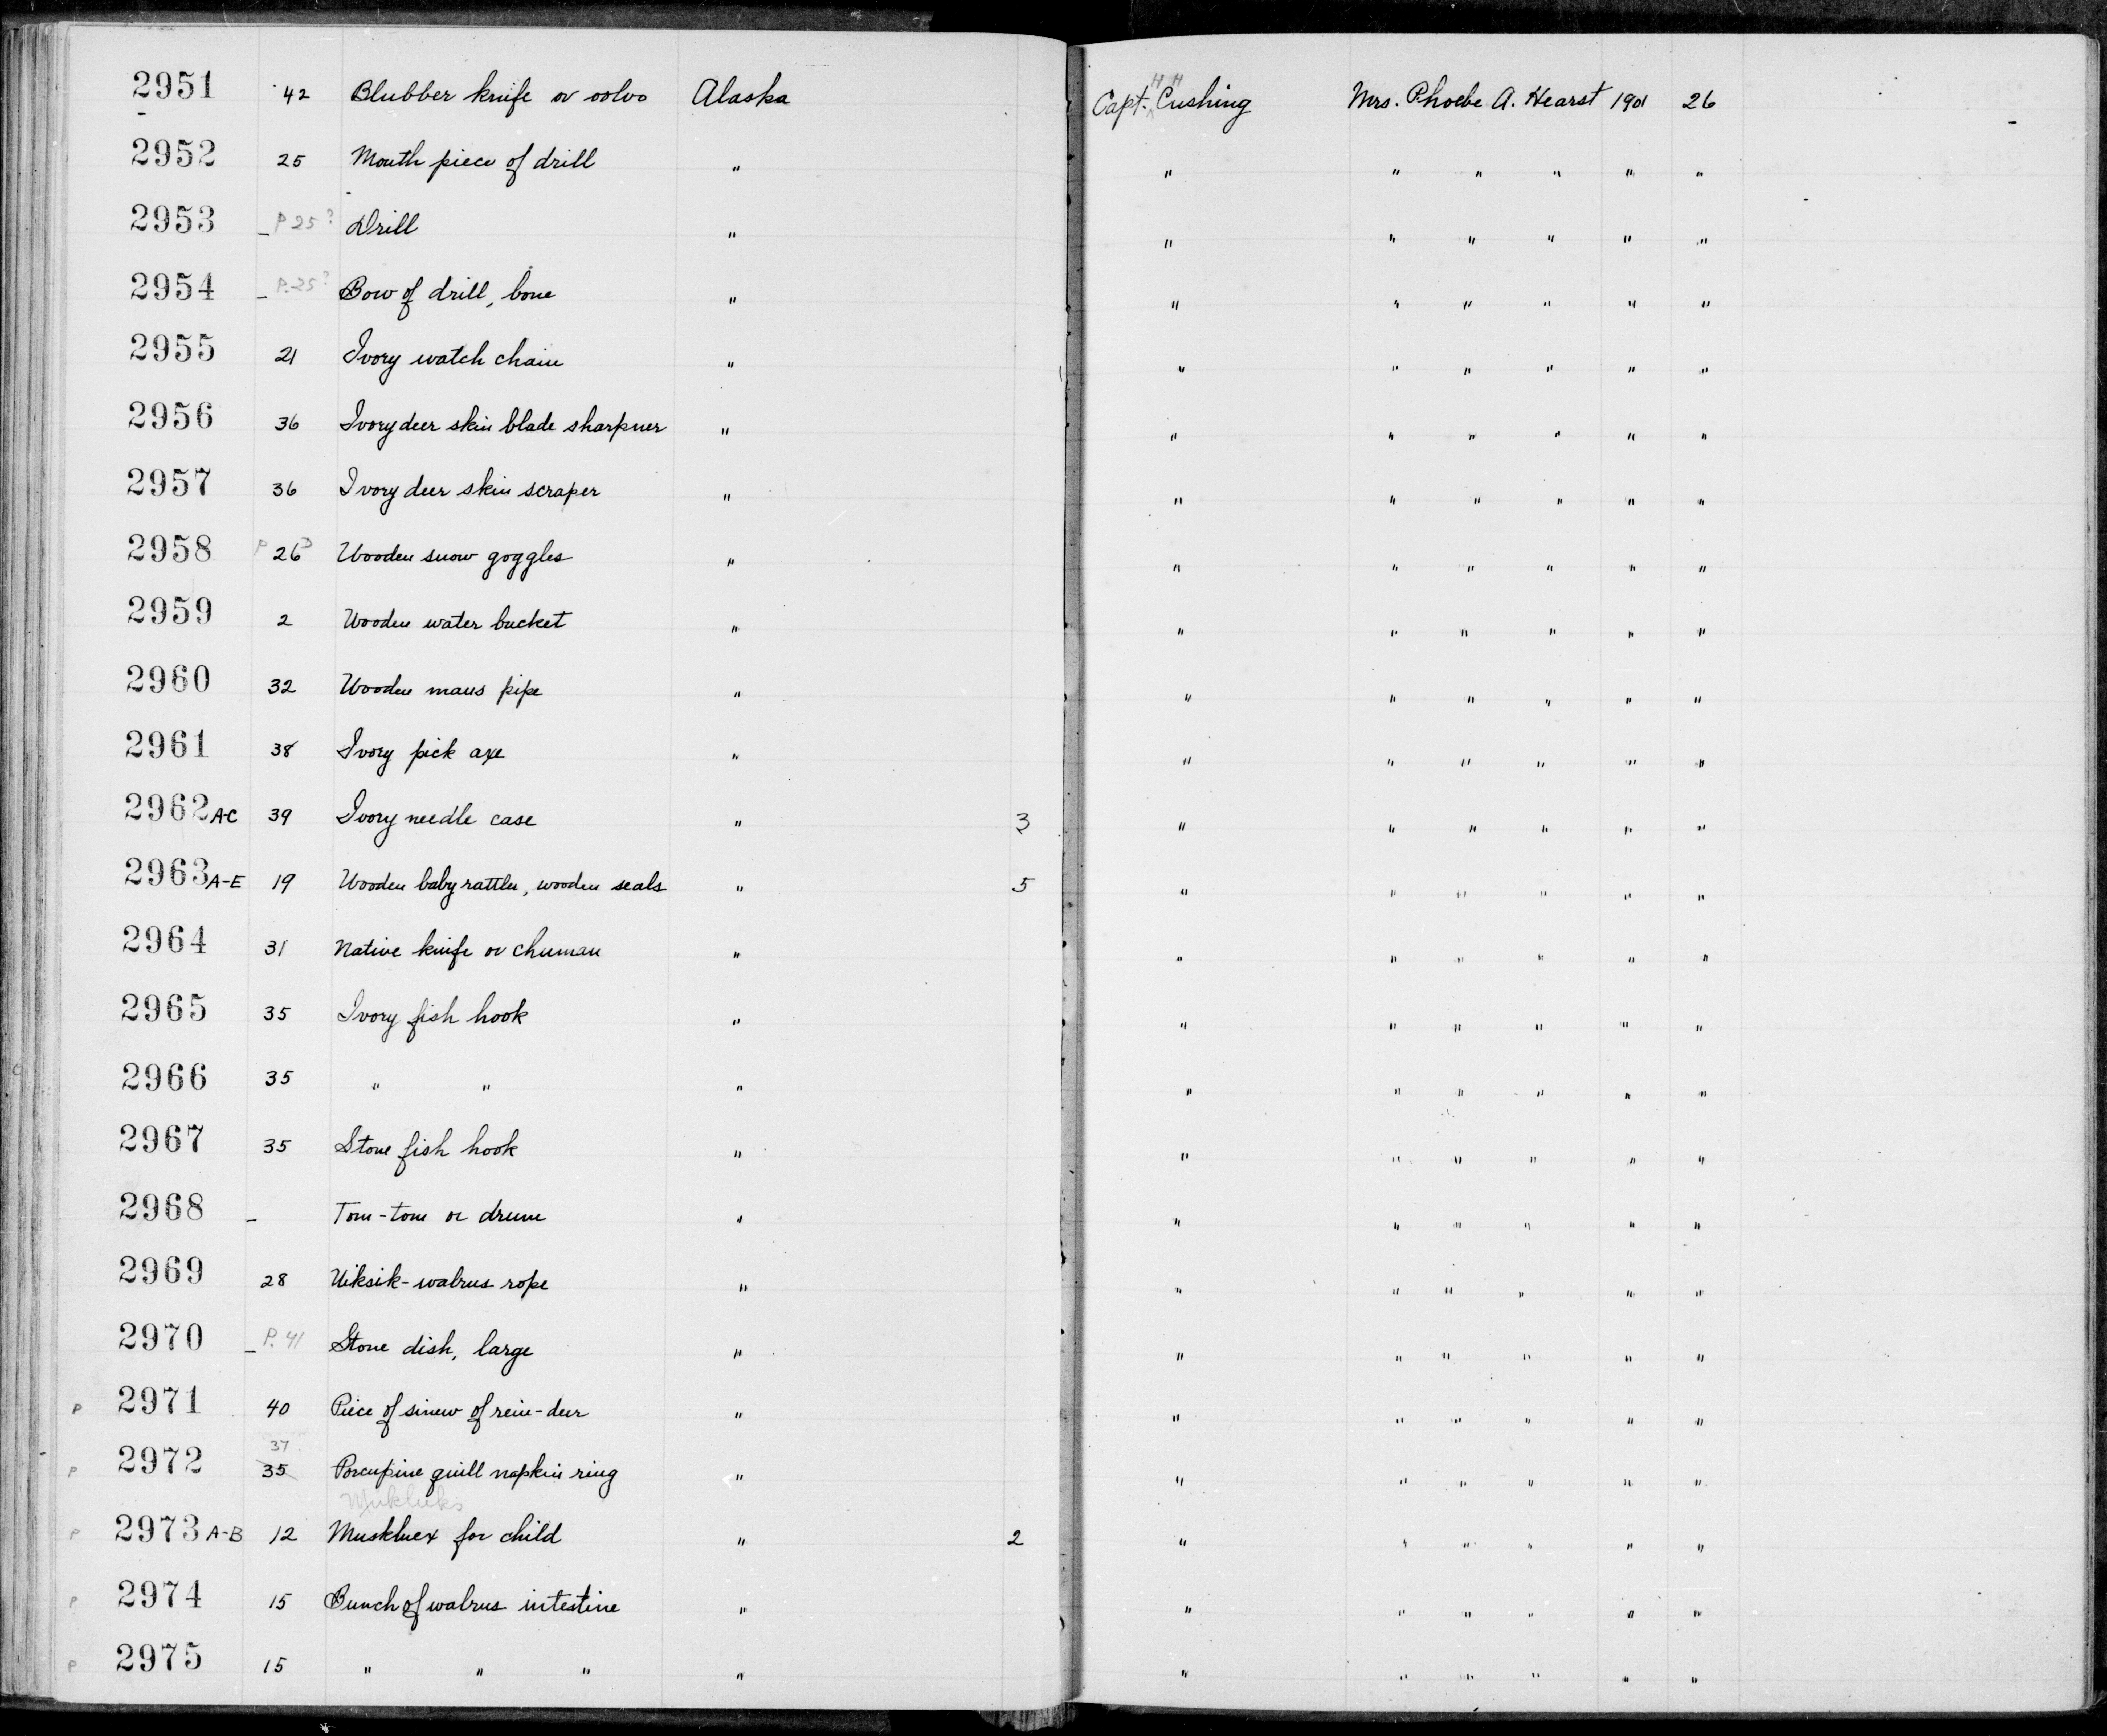 2951 42 Blubber knife or ooloo Alaska Capt. H H Cushing Mrs. Phoebe A. Hearst 1901 26
2952 25 Mouth piece of drill " " " " " " "
2953 – P 25? Drill " " " " " " "
2954 – P. 25? Bow of drill, bone " " " " " " "
2955 21 Ivory watch chain " " " " " " "
2956 36 Ivory deer skin blade sharpner " " " " " " "
2957 36 Ivory deer skin scraper " " " " " " "
2958 P 26? Wooden snow goggles " " " " " " "
2959 2 Wooden water bucket " " " " " " "
2960 32 Wooden mans pipe " " " " " " "
2961 38 Ivory pick axe " " " " " " "
2962 A-C 39 Ivory needle case " 3 " " " " " "
2963 A-E 19 Wooden baby rattler, wooden seals " 5 " " " " " "
2964 31 Native knife or chuman " " " " " " "
2965 35 Ivory fish hook " " " " " " "
2966 35 " " " " " " " " "
2967 35 Stone fish hook " " " " " " "
2968 – Tom-tom or drum " " " " " " "
2969 28 Uiksik-walrus rope " " " " " " "
2970 – P. 41 Stone dish, large " " " " " " "
P 2971 40 Piece of sinew of rein-deer " " " " " " "
P 2972 37 35 Porcupine quill napkin ring " " " " " " "
Mukluks
P 2973 A-B 12 Muskluex for child " 2 " " " " " "
P 2974 15 Bunch of walrus intestine " " " " " " "
P 2975 15 " " " " " " " " " "